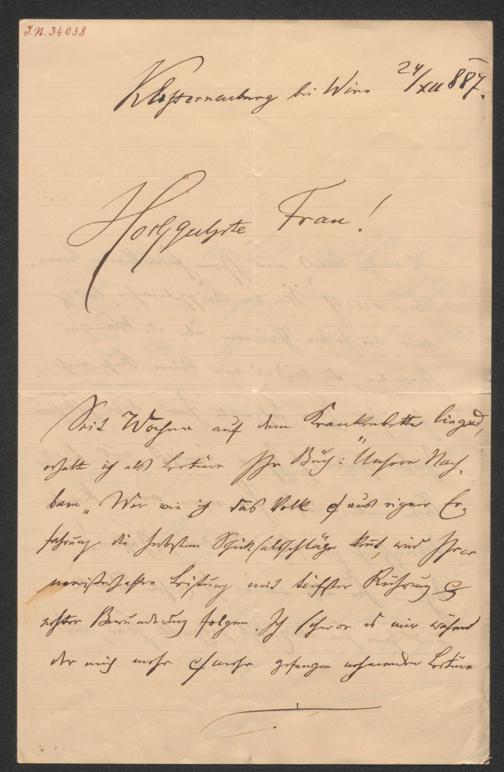 I.N. 34038
Klosterneuburg bei Wien 24/XII 887.
Hochgeehrte Frau!
Seit Wochen auf dem Krankenbette liegend,
erhalte ich als Lectüre Ihr Buch: "Unsere Nach-
barn" Wer wie ich das Volk & aus eigner Er-
fahrung die herbsten Schicksalsschläge kennt, wird Ihrer
meisterhaften Leistung mit tiefster Rührung &
echter Bewunderung folgen. Ich schwor es mir während
der mich mehr & mehr gefangen nehmenden Lectüre